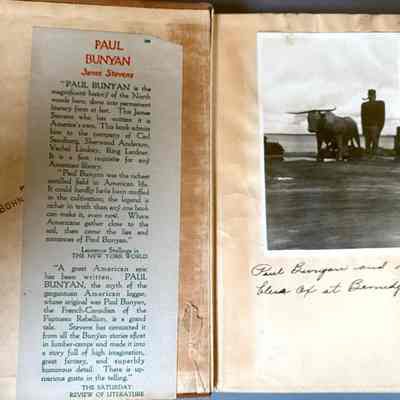 PAUL
BUNYAN
James Stevens
"PAUL BUNYAN is the
magnificent history of the North
woods hero, done into permanent
literary form at last. This James
Stevens who has written it is
America's own. This book admits
him to the company of Carl
Sandburg, Sherwood Anderson,
Vachel Lindsay, Ring Lardner.
It is a first requisite for any
American library.
"Paul Bunyan was the richest
untilled field in American life.
It could hardly have been muffed
in the cultivation; the legend is
richer in truth than any one book
can make it, even now. Where
Americans gather close to the
soil, then come the lies and
romances of Paul Bunyan."
Laurence Stallings in
THE NEW YORK WORLD
"A great American one
has been written. PAUL
BUNYAN, the myth of the
gargantuan American logger,
whose original was Paul Bunyon,
the French-Canadian of the
Papineau Rebellion, is a grand
tale. Stevens has constructed it
from all the Bunyan stories afloat
in lumber-camps and made it into
a story full of high imagination,
great fantasy, and superbly
humorous detail. There is up-
roarious gusto in the telling."
THE SATURDAY
REVIEW OF LITERATURE
BOHN
Paul Bunyan and
Blue Ox at Bemidj